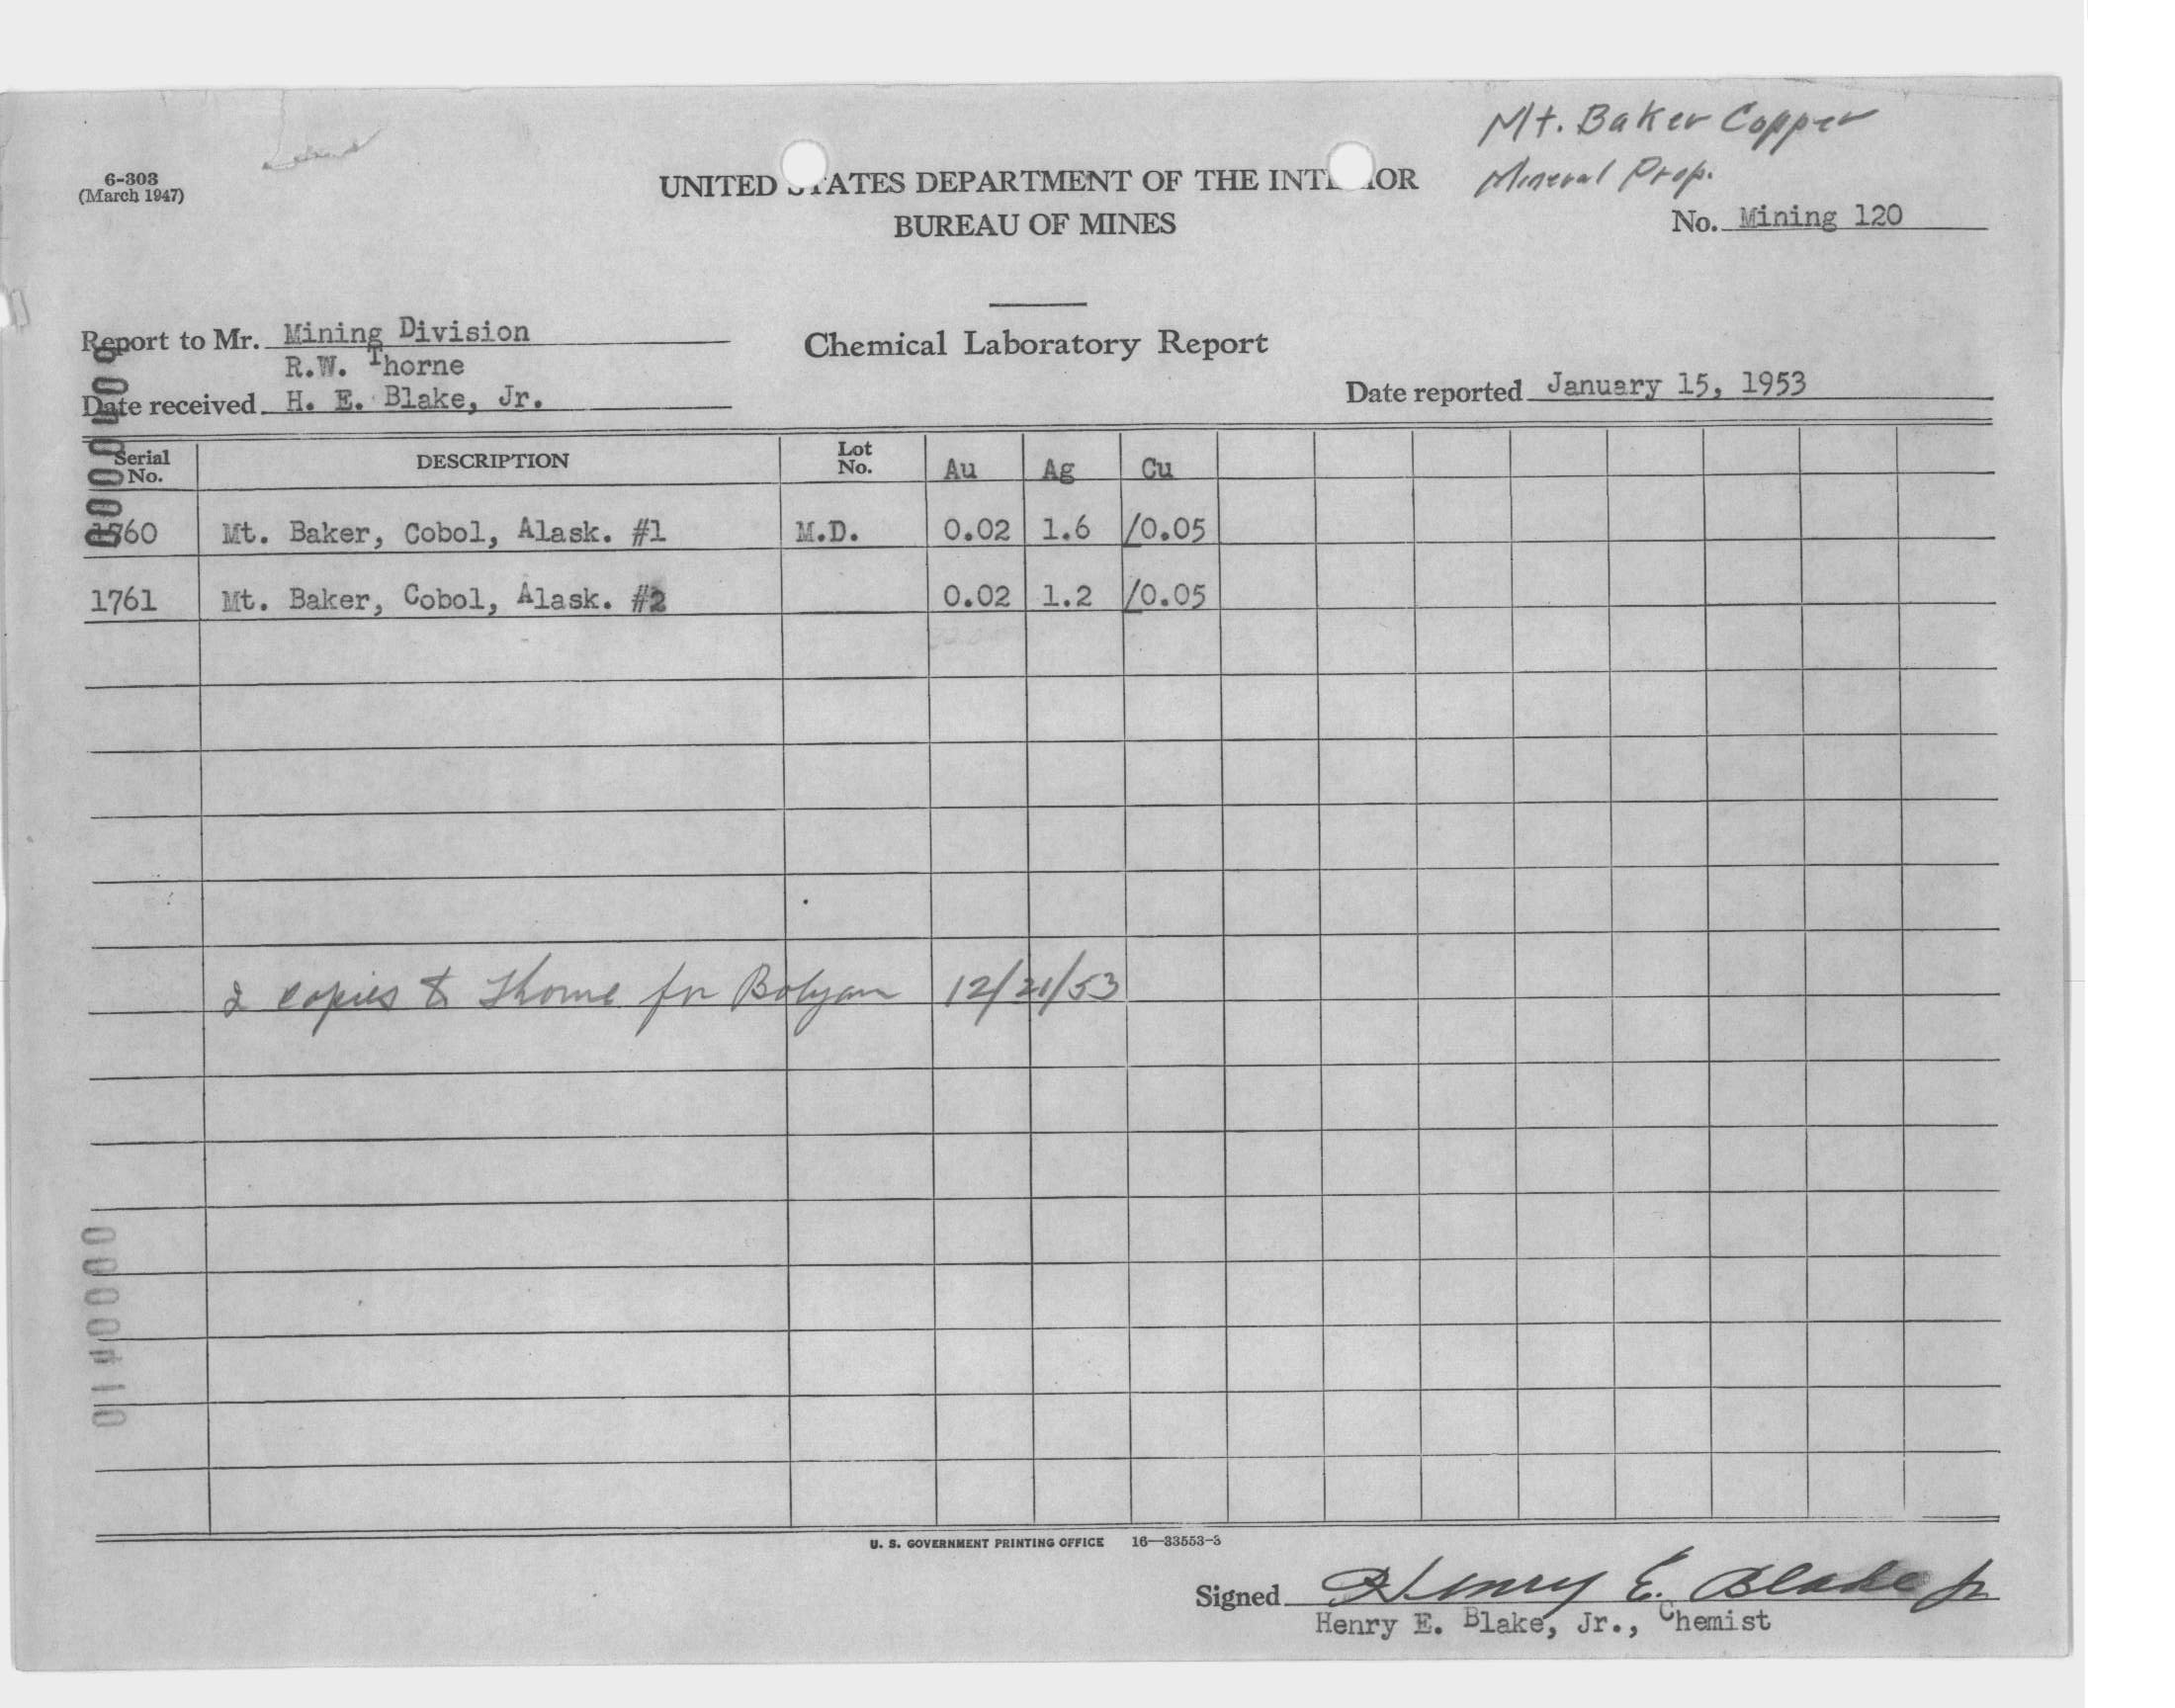 Mt. Baker Copper
Mineral Prop.
6-303
(March 1947)
UNITED STATES DEPARTMENT OF THE INTERIOR
BUREAU OF MINES
No. Mining 120
Report to Mr. Mining Division
R.W. Thorne
Chemical Laboratory Report
Date received H. E. Blake, Jr.
Date reported January 15, 1953
Serial No. DESCRIPTION Lot No. Au Ag Cu
1760 Mt. Baker, Cobol, Alask. #1 M.D. 0.02 1.6 /0.05
1761 Mt. Baker, Cobol, Alask. #2 0.02 1.2 /0.05
2 copies to Thorne for Bolyan 12/21/53
U. S. GOVERNMENT PRINTING OFFICE 16—33553-3
Signed Henry E. Blake Jr
Henry E. Blake, Jr., Chemist